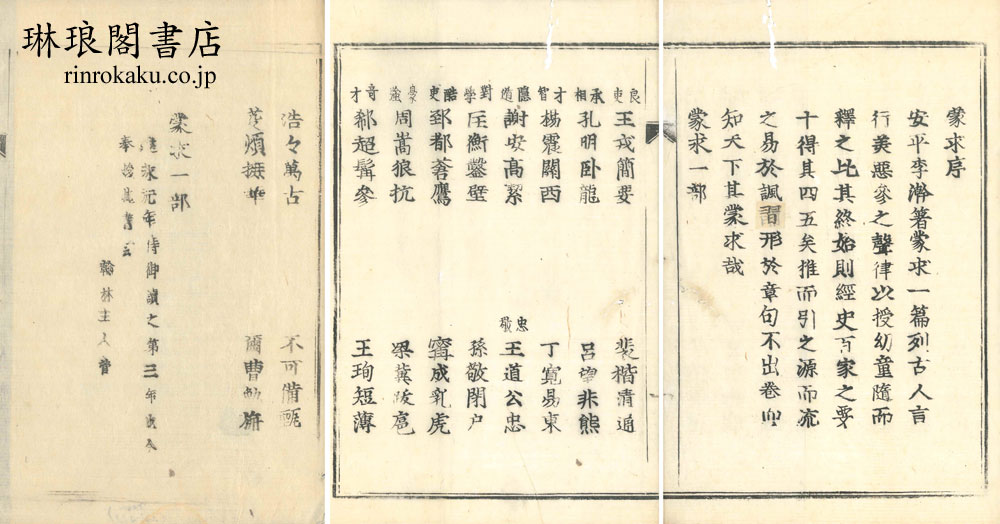 琳琅閣書店
rinrokaku.co.jp
蒙求序
安平李瀚著蒙求一篇列古人言
行美悪參之聲律以授幼童隨而
釋之比其終始則經史百家之要
十得其四五矣推而引之源而流
之易於諷習形於章句不出卷而
知天下其蒙求哉
蒙求一部
良吏 王戎簡要 裴楷清通
承相 孔明卧龍 呂望非熊
才智 楊震關西 丁寛易東
隱遁 謝安高絜 忠敬 王道公忠
對學 匡衡鑿壁 孫敬閉戸
酷吏 郅都蒼鷹 甯成乳虎
豪強 周嵩狼抗 梁冀跋扈
奇才 郗超髯參 王珣短薄
浩々萬古 不可備甄
芟煩摭華 爾曹勉旃
蒙求一部
建永元年侍御讀之第三年
翰林主人